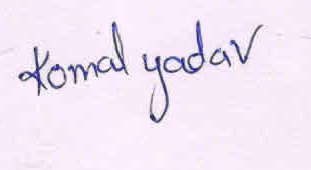 Komal yadav